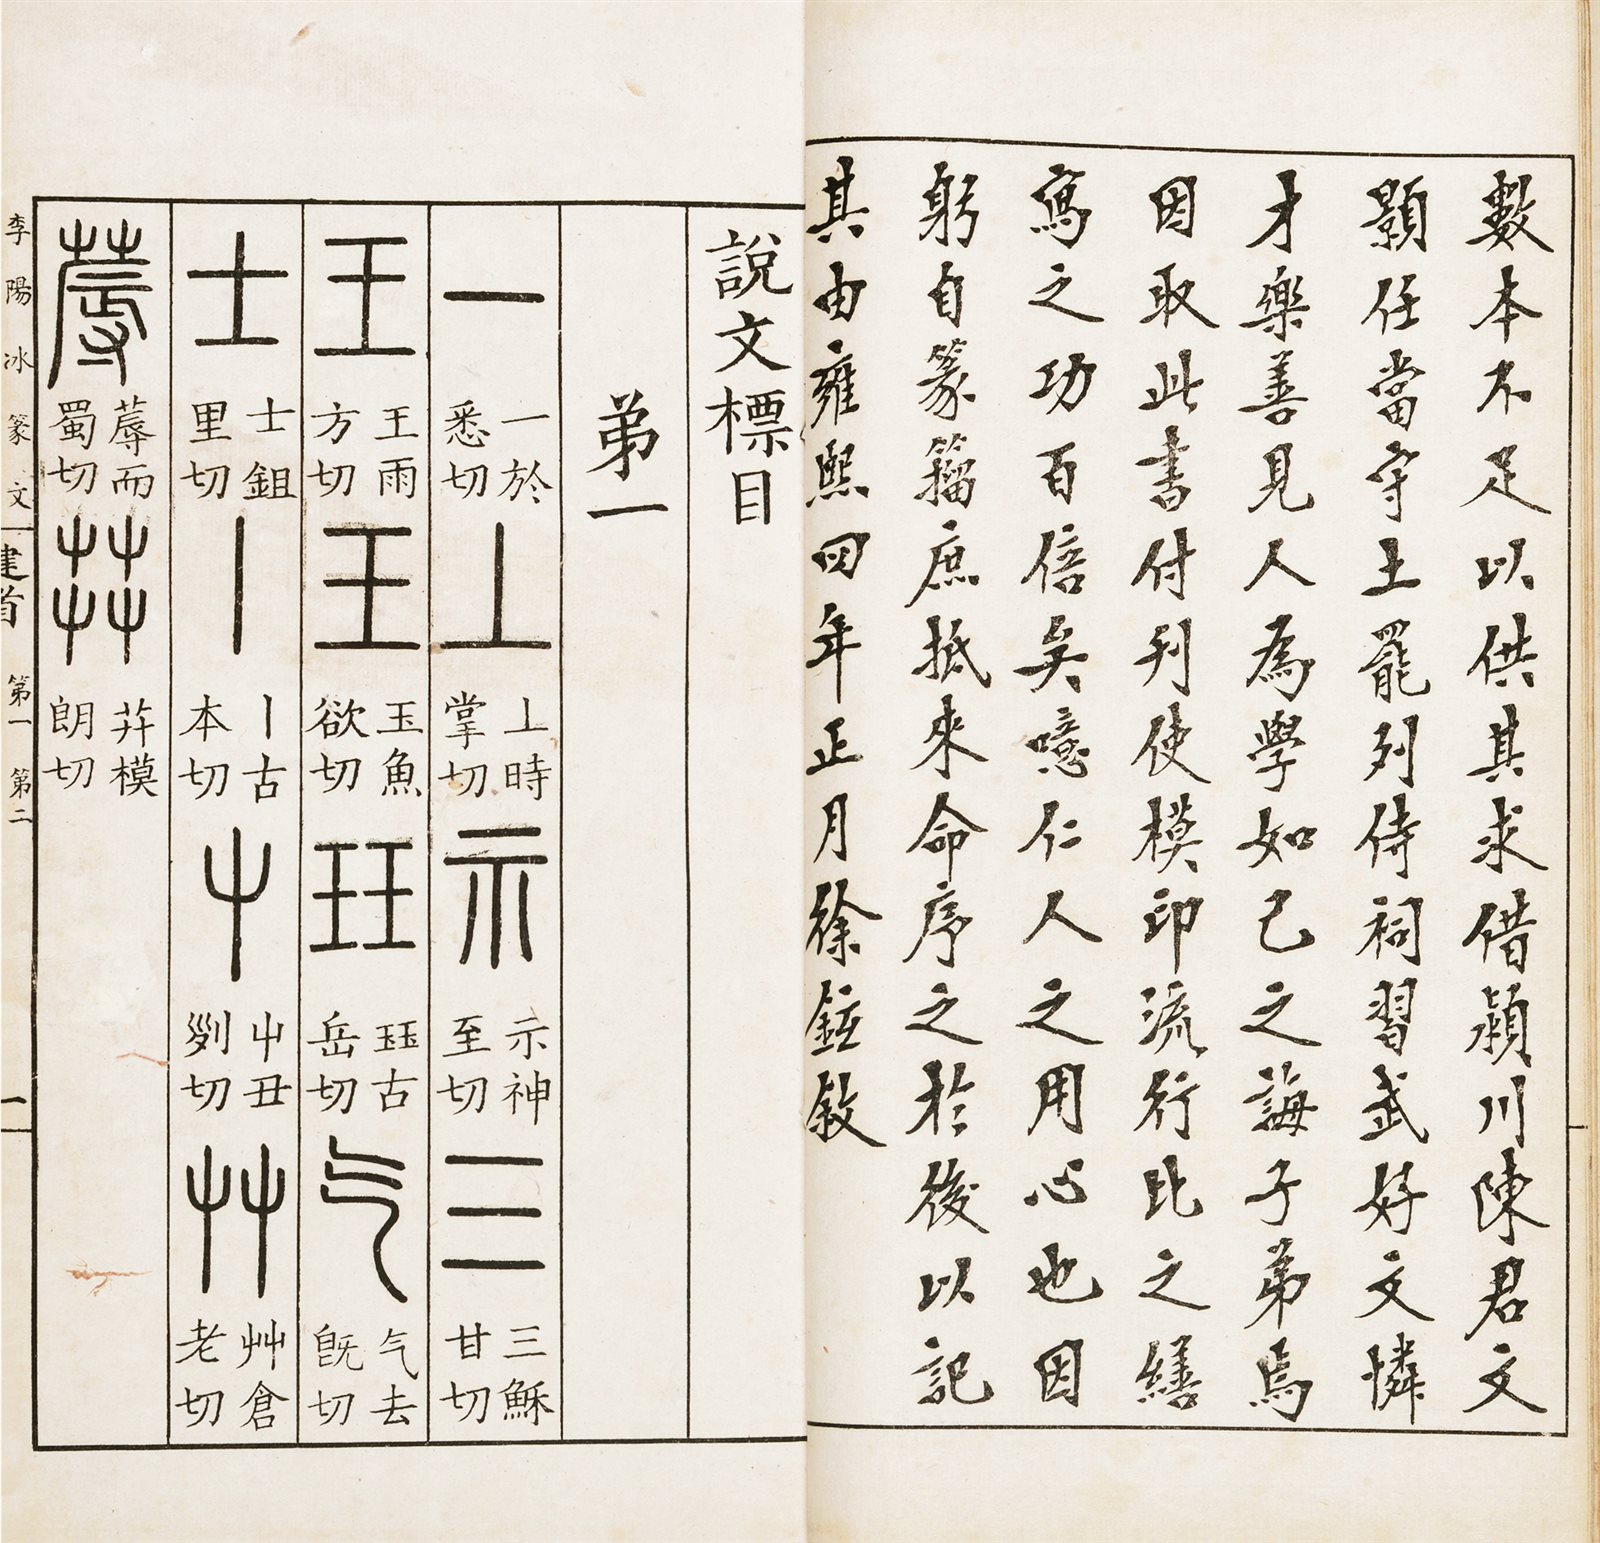 數本不足以供其求借潁川陳君文
顥任當守土罷列侍祠習武好文憐
才樂善見人為學如己之誨子弟焉
因取此書付刊使模印流行比之繕
寫之功百倍矣噫仁人之用心也因
躬自篆籀庶抵來命序之於後以記
其由雍熙四年正月徐鉉敘
說文標目
弟一
一 一於悉切 丄 丄時掌切 示 示神至切 三 三穌甘切
王 王雨方切 玉 玉魚欲切 玨 玨古岳切 气 气去旣切
士 士鉏里切 丨 丨古本切 屮 屮丑列切 艸 艸倉老切
蓐 蓐而蜀切 茻 茻模朗切
李陽冰篆文建首 第一 第二 一